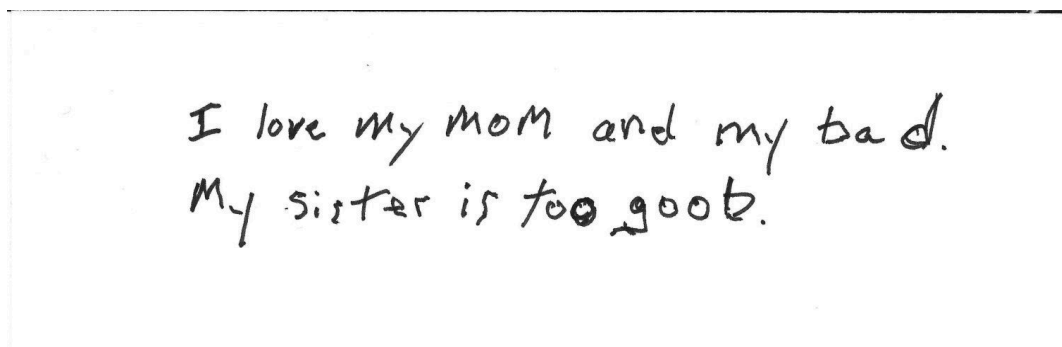 I love my MoM and my bad.
My sister is too goob.